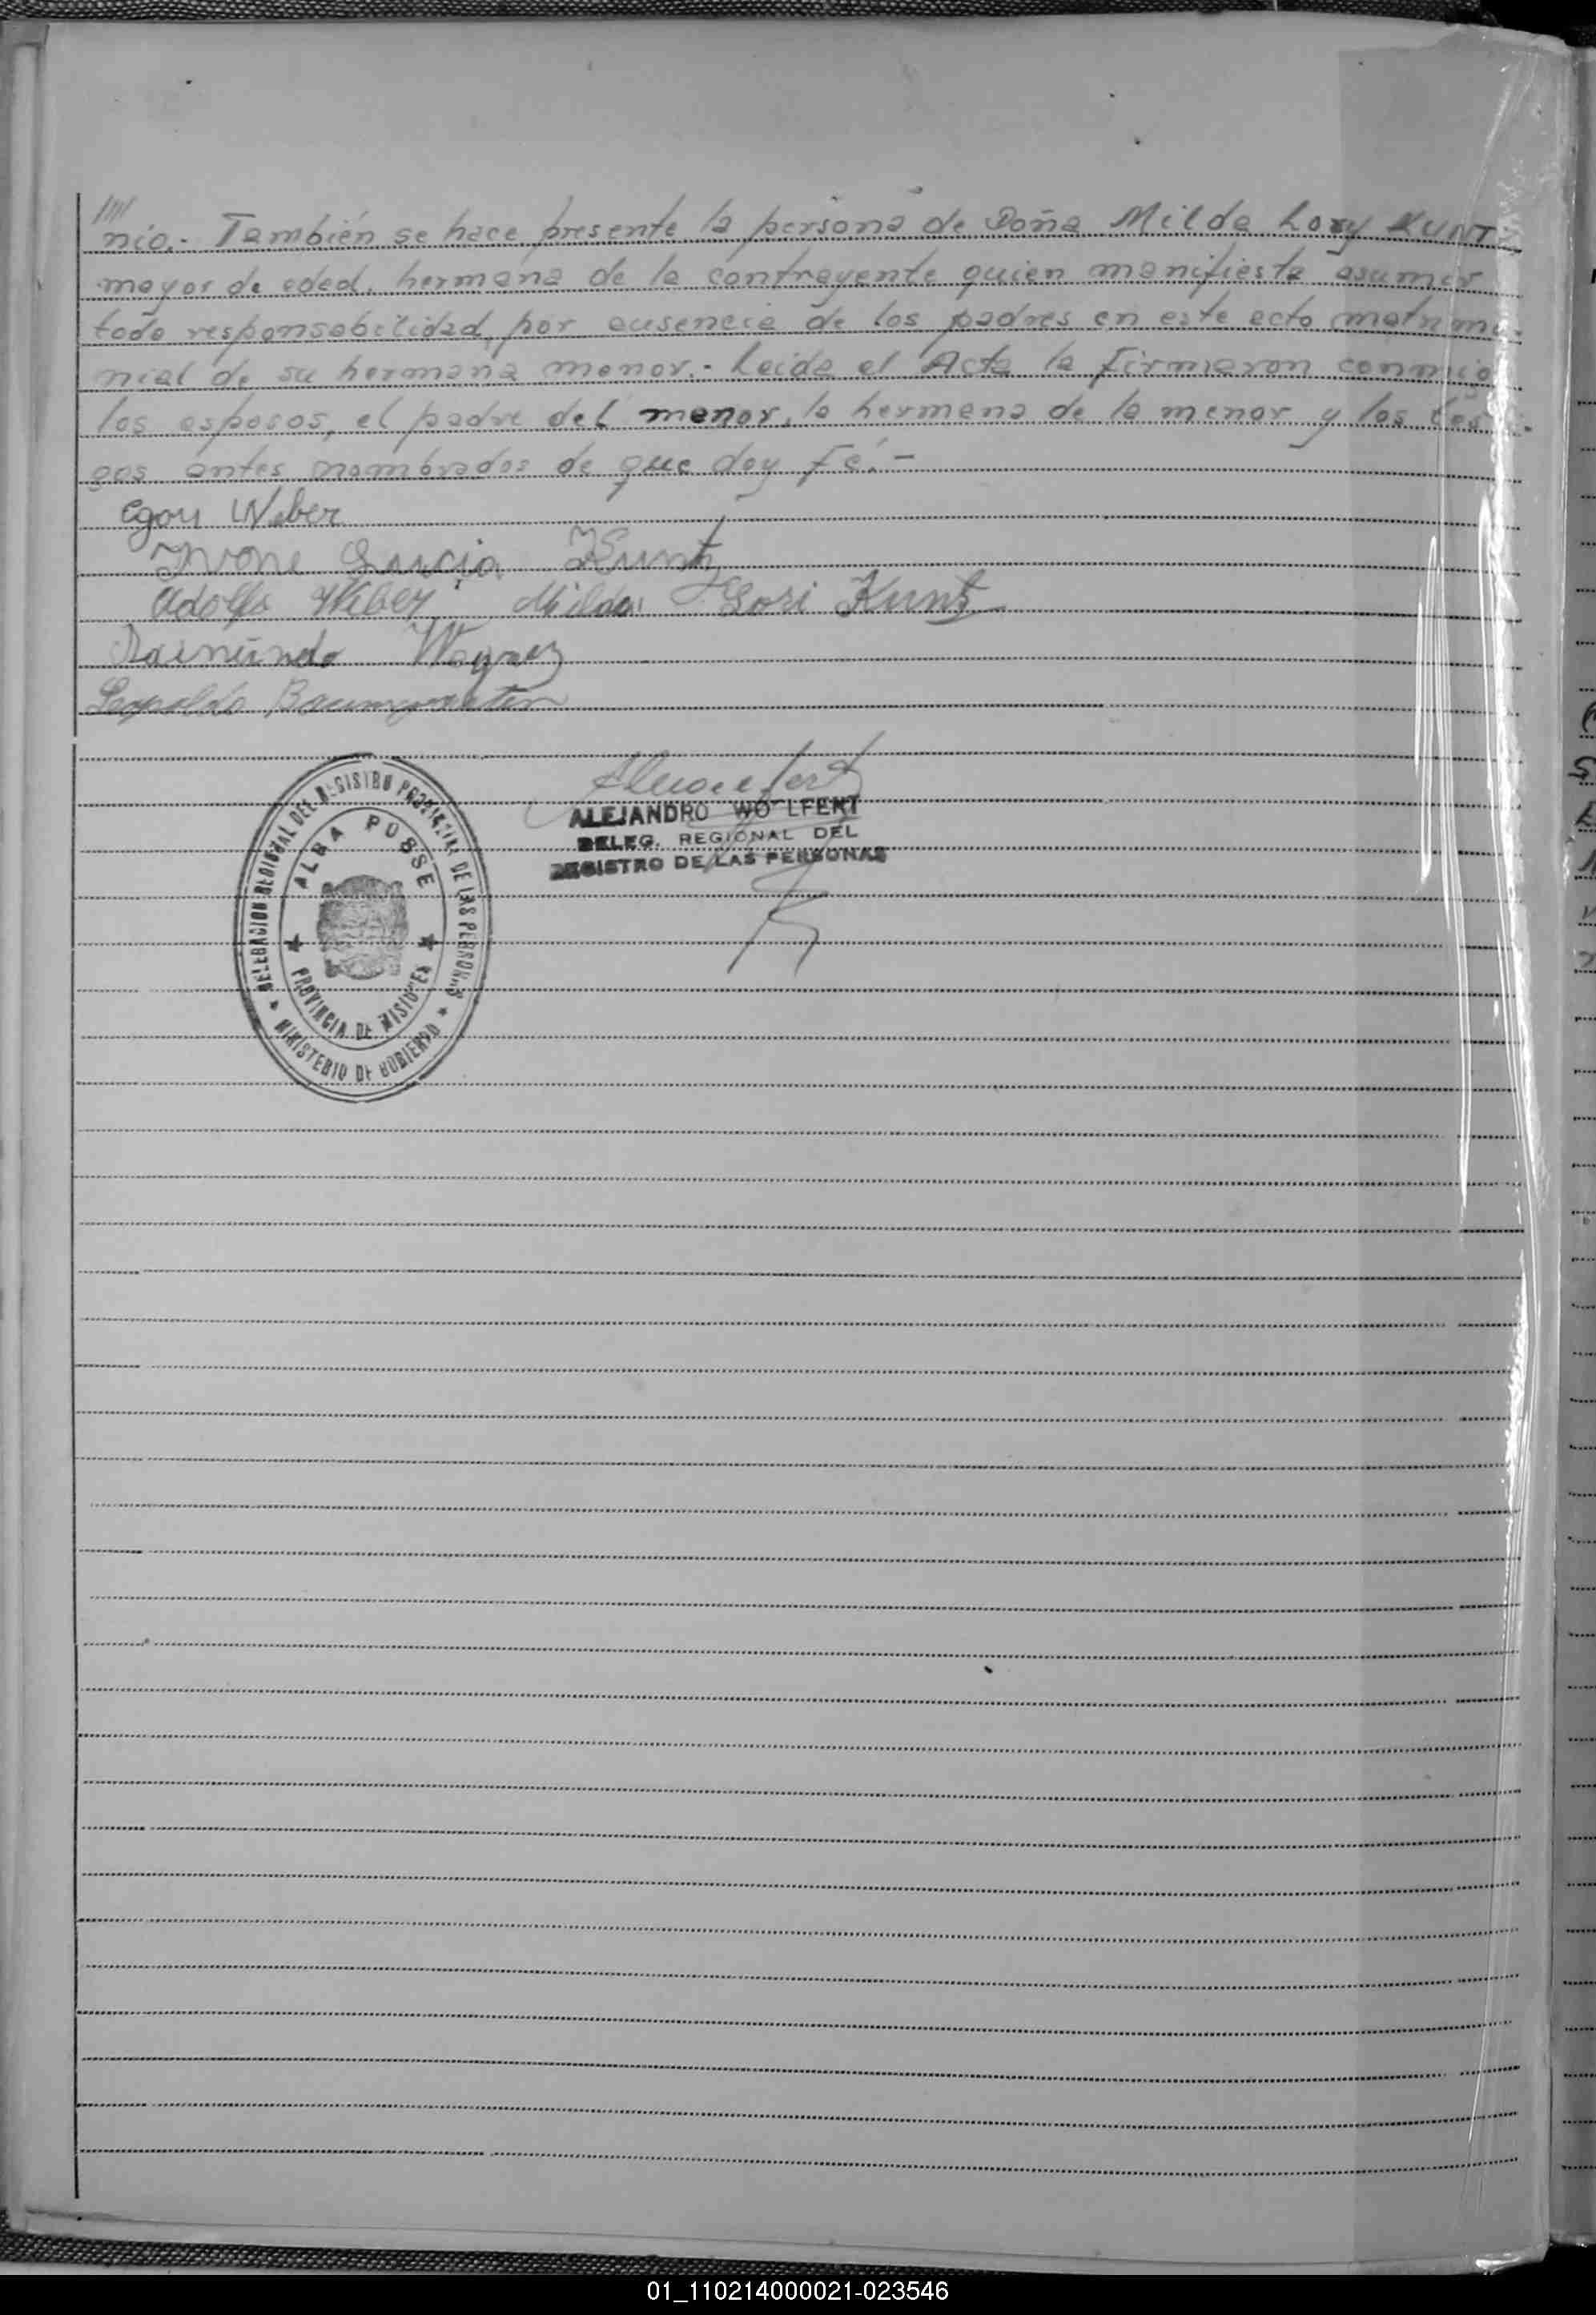 ////
nio.- También se hace presente la persona de Doña Milda Lory KUNT
mayor de edad, hermana de la contrayente quien manifiesta asumir
toda responsabilidad, por ausencia de los padres en este acto matrimo-
nial de su hermana menor.- Leida el Acta la firmaron conmigo
los esposos, el padre del menor, la hermana de la menor y los testi-
gos antes nombrados de que doy Fé.-
Egon Weber
Ivone Lucia Kuntz
Adolfo Weber Milda Lori Kuntz
Raimundo Wagner
Leopoldo Baumgarten
ALEJANDRO WOLFERT
DELEG. REGIONAL DEL
REGISTRO DE LAS PERSONAS
DELEGACION REGIONAL DEL REGISTRO PROVINCIAL DE LAS PERSONAS
ALBA POSSE
PROVINCIA DE MISIONES
MINISTERIO DE GOBIERNO
01_110214000021-023546